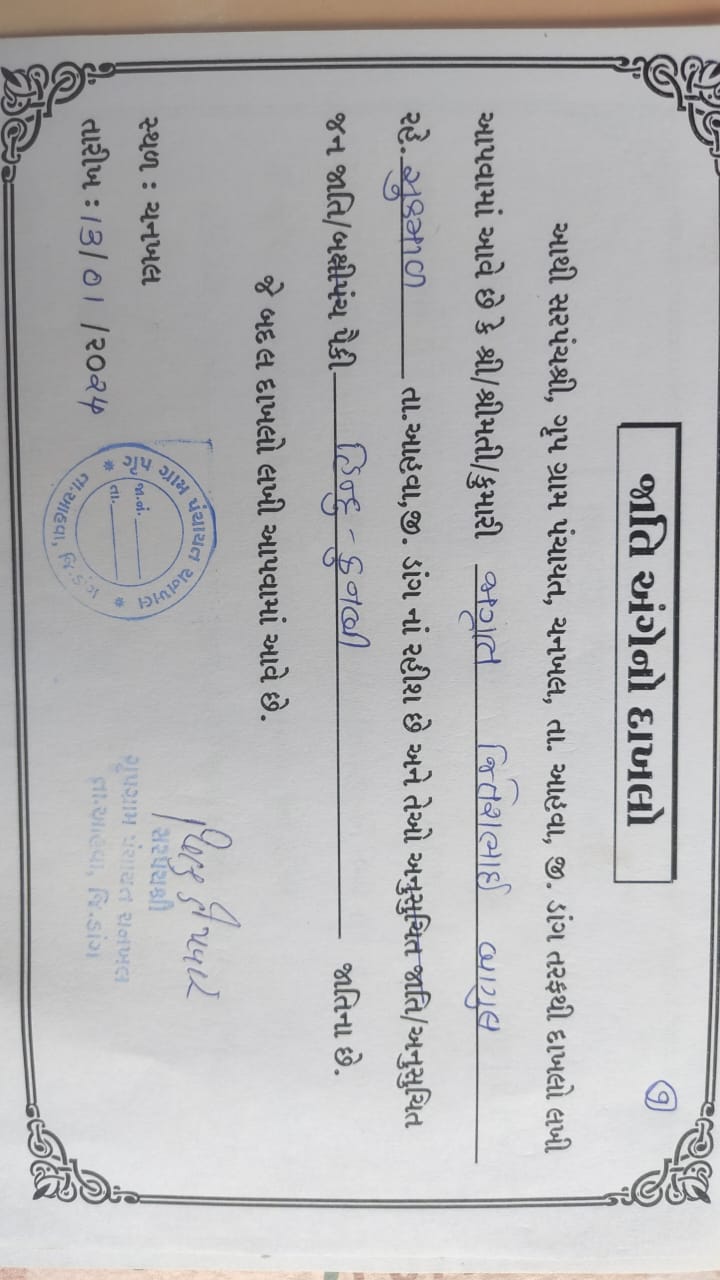 ૧
જાતિ અંગેનો દાખલો
આથી સરપંચશ્રી, ગૃપ ગ્રામ પંચાયત, ચનખલ, તા. આહવા, જી. ડાંગ તરફથી દાખલો લખી
આપવામાં આવે છે કે શ્રી/શ્રીમતી/કુમારી જાગૃત જિતેશભાઈ બાગુલ
રહે. સુકમાળ તા.આહવા,જી. ડાંગ નાં રહીશ છે અને તેઓ અનુસુચિત જાતિ/અનુસુચિત
જન જાતિ/બક્ષીપંચ પૈકી હિન્દુ - કુનબી જાતિના છે.
જે બદલ દાખલો લખી આપવામાં આવે છે.
સ્થળ : ચનખલ
તારીખ : 13/01/૨૦૨૫
ગૃપ ગ્રામ પંચાયત ચનખલ
જા.નં.
તા.
તા.આહવા, જિ.ડાંગ
સરપંચશ્રી
ગૃપગ્રામ પંચાયત ચનખલ
તા.આહવા, જિ.ડાંગ